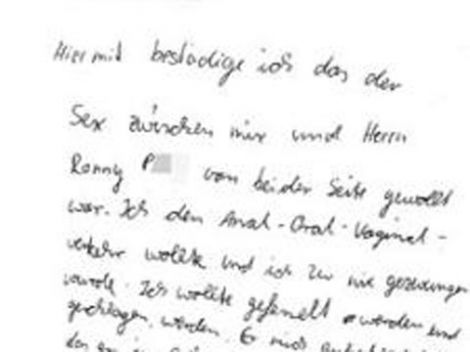 Hiermit bestadige ich das der
Sex zwischen mir und Herrn
Ronny P von beider Seite gewollt
war. Ich den Anal-Oral-Vaginal-
verkehr wollte und ich zu nie gezwungen
wurde. Ich wollte gefesselt werden und
geschlagen werden. Er mich
das